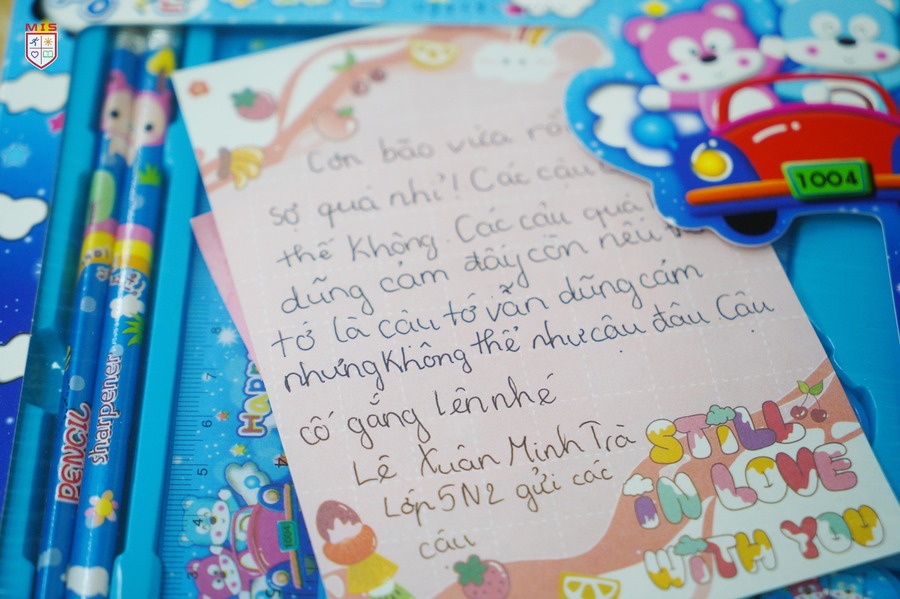 MIS
Cơn bão vừa rồi
sợ quá nhỉ! Các cậu
thế không. Các cậu quả
dũng cảm đấy còn nếu
tớ là cậu tớ vẫn dũng cảm
nhưng không thể như cậu đâu Cậu
cố gắng lên nhé
Lê Xuân Minh Trà
Lớp 5N2 gửi các
cậu
STILL
IN LOVE
WITH YOU
1004
PENCIL
sharpener
HAPP
8
7
6
5
4
3
1004